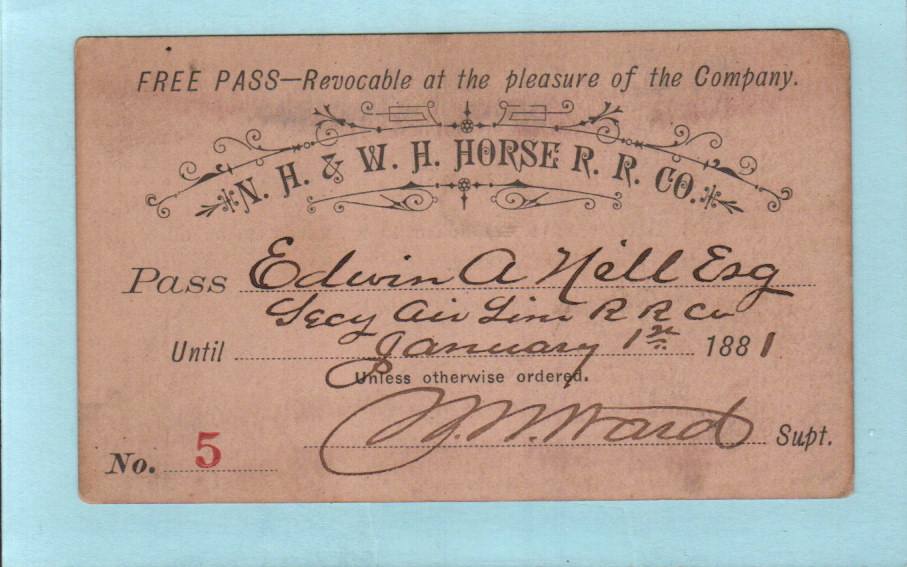 FREE PASS—Revocable at the pleasure of the Company.
N. H. & W. H. HORSE R. R. CO.
Pass Edwin A Hill Esq
Secy Air Line R R Co
Until January 1st 1881
Unless otherwise ordered.
Ward Supt.
No. 5